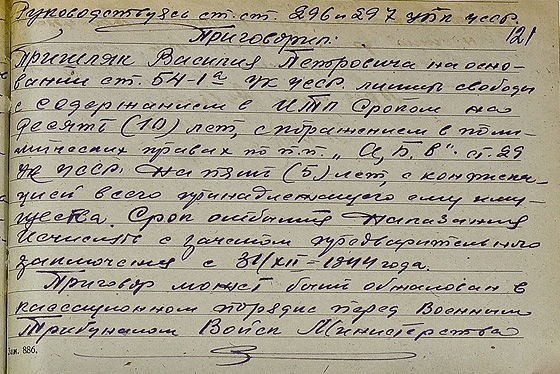 Руководствуясь ст.ст. 296 и 297 УПК УССР.
Приговорил: 121
Пришляк Василия Петровича на осно-
вании ст. 54-1а УК УССР. лишить свободы
с содержанием в ИТЛ сроком на
десять (10) лет, с поражением в поли-
тических правах по п.п. „а, б, в“. ст. 29
УК УССР. на пять (5) лет, с конфиска-
цией всего принадлежащего ему иму-
щества. Срок отбытия наказания
исчислять с зачетом предварительного
заключения с 31/XII-1944 года.
Приговор может быть обжалован в
кассационном порядке перед Военным
Трибуналом Войск Министерства
Зак. 886.